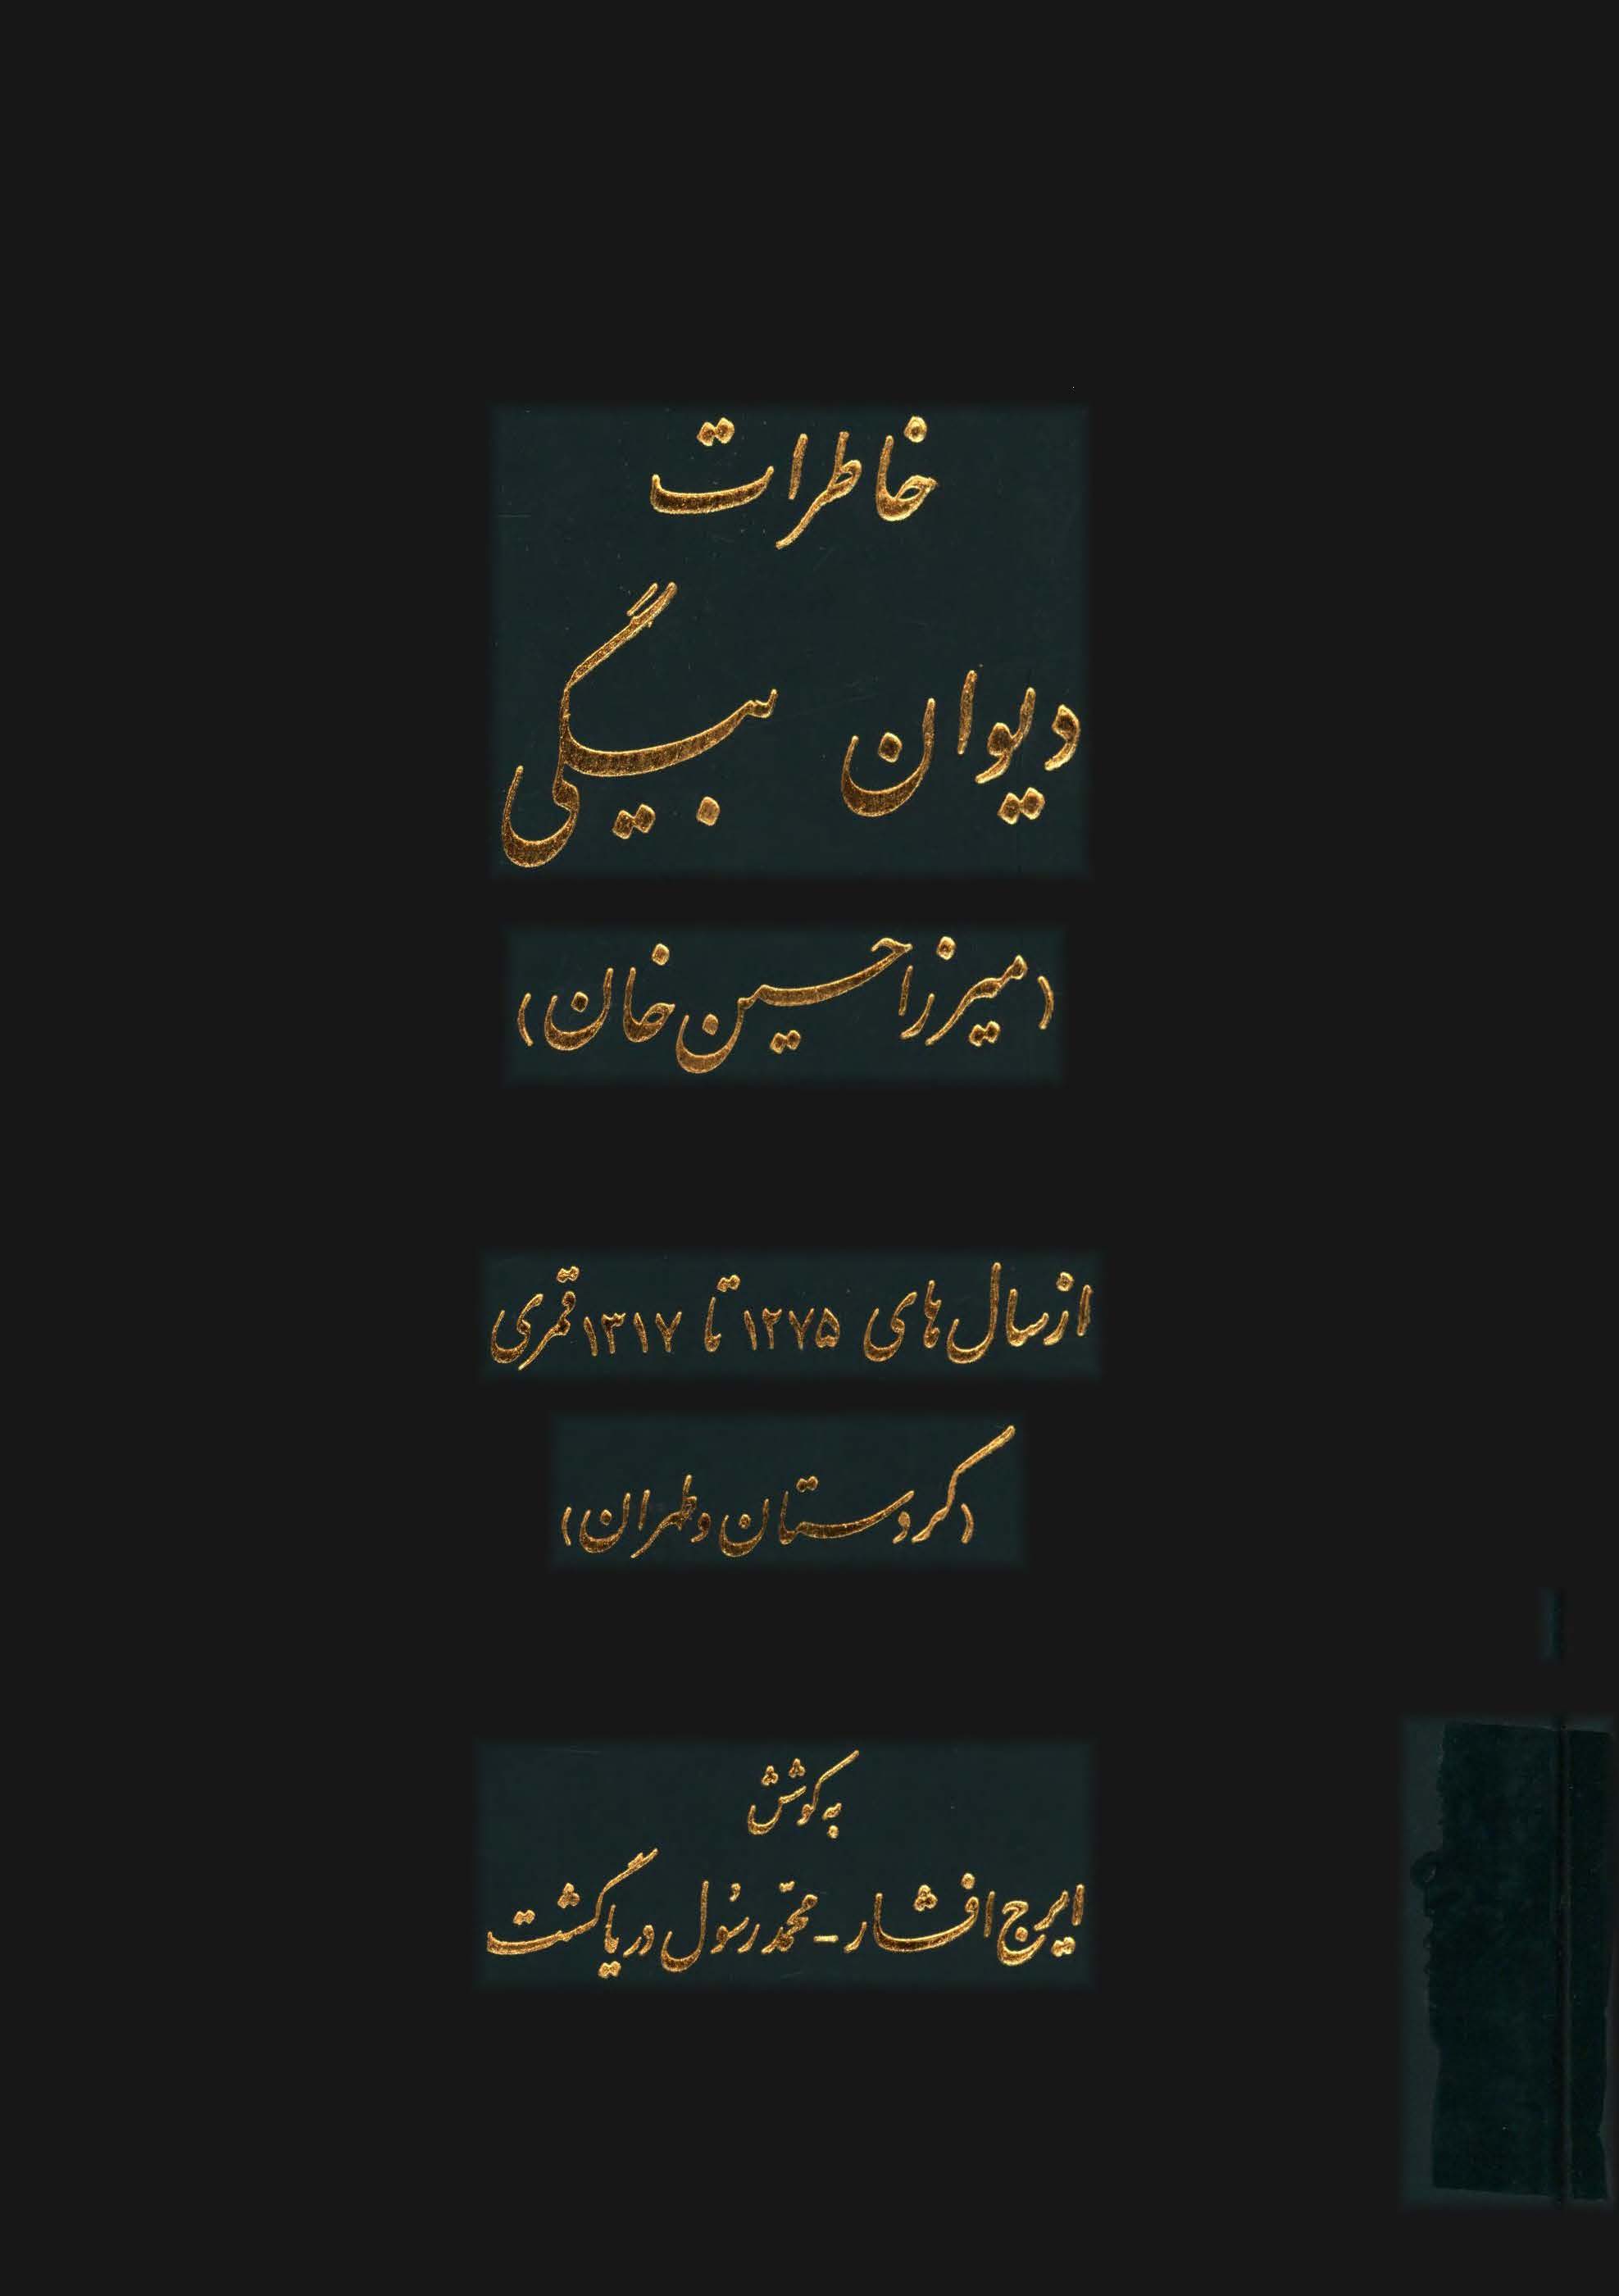 خاطرات
دیوان بیگی
(میرزا حسین خان)
از سال های ۱۲۷۵ تا ۱۳۱۷ قمری
(کردستان و طهران)
به کوشش
ایرج افشار - محمّد رسُول دریاگشت